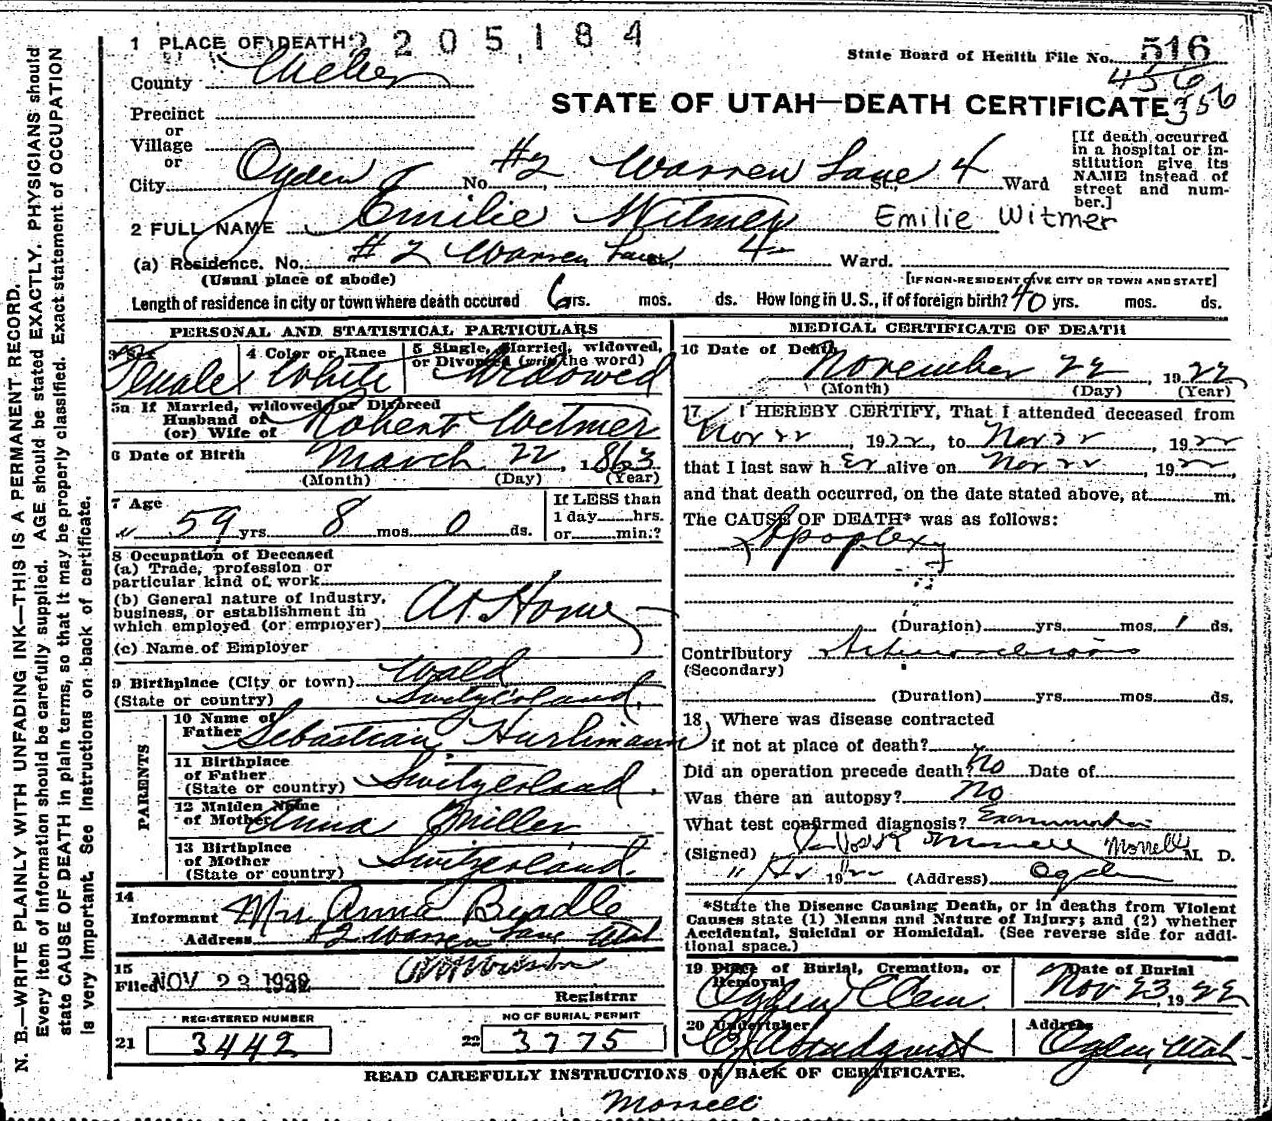 1 PLACE OF DEATH 2 2 0 5 1 8 4
State Board of Health File No. 516
County Weber
456
356
STATE OF UTAH—DEATH CERTIFICATE
Precinct
or
Village
or
City Ogden No. #2 Warren Lane St., 4 Ward
[If death occurred
in a hospital or in-
stitution give its
NAME instead of
street and num-
ber.]
2 FULL NAME Emilie Witmer Emilie Witmer
(a) Residence. No. #2 Warren Lane, 4 Ward.
(Usual place of abode)
[IF NON-RESIDENT GIVE CITY OR TOWN AND STATE]
Length of residence in city or town where death occured 6 yrs. mos. ds. How long in U. S., if of foreign birth? 40 yrs. mos. ds.
PERSONAL AND STATISTICAL PARTICULARS
3 Sex 4 Color or Race 5 Single, Married, widowed,
or Divorced (write the word)
Female White Widowed
5a If Married, widowed or Divorced
Husband of
(or) Wife of Robert Witmer
6 Date of Birth March 22, 1863
(Month) (Day) (Year)
7 Age
59 yrs 8 mos 0 ds.
If LESS than
1 day hrs.
or min.?
8 Occupation of Deceased
(a) Trade, profession or
particular kind of work
(b) General nature of industry,
business, or establishment in
which employed (or employer) At Home
(c) Name of Employer
9 Birthplace (City or town) Wald
(State or country) Switzerland.
PARENTS
10 Name of
Father Sebastian Hurlimann
11 Birthplace
of Father
(State or country) Switzerland.
12 Maiden Name
of Mother Anna Miller
13 Birthplace
of Mother
(State or country) Switzerland.
14
Informant Mrs Anna Beadle
Address #2 Warren Lane Utah
15
Filed NOV 23 1922
Registrar
REGISTERED NUMBER NO OF BURIAL PERMIT
21 3442 22 3775
MEDICAL CERTIFICATE OF DEATH
16 Date of Death
November 22, 1922
(Month) (Day) (Year)
17 I HEREBY CERTIFY, That I attended deceased from
Nov 22, 1922, to Nov 22, 1922
that I last saw h er alive on Nov 22, 1922,
and that death occurred, on the date stated above, at m.
The CAUSE OF DEATH* was as follows:
Apoplexy
(Duration) yrs. mos. 1 ds.
Contributory Arteriosclerosis
(Secondary)
(Duration) yrs. mos. ds.
18 Where was disease contracted
if not at place of death?
Did an operation precede death? No Date of
Was there an autopsy? No
What test confirmed diagnosis? Examination
(Signed) Morrell Morrell M. D.
1922 (Address) Ogden
*State the Disease Causing Death, or in deaths from Violent
Causes state (1) Means and Nature of Injury; and (2) whether
Accidental, Suicidal or Homicidal. (See reverse side for addi-
tional space.)
19 Place of Burial, Cremation, or
Removal
Date of Burial
Ogden Cem. Nov 23, 1922
20 Undertaker Address
Ogden, Utah
READ CAREFULLY INSTRUCTIONS ON BACK OF CERTIFICATE.
Morrell
N. B.—WRITE PLAINLY WITH UNFADING INK—THIS IS A PERMANENT RECORD.
Every item of information should be carefully supplied. AGE should be stated EXACTLY. PHYSICIANS should
state CAUSE OF DEATH in plain terms, so that it may be properly classified. Exact statement of OCCUPATION
is very important. See instructions on back of certificate.